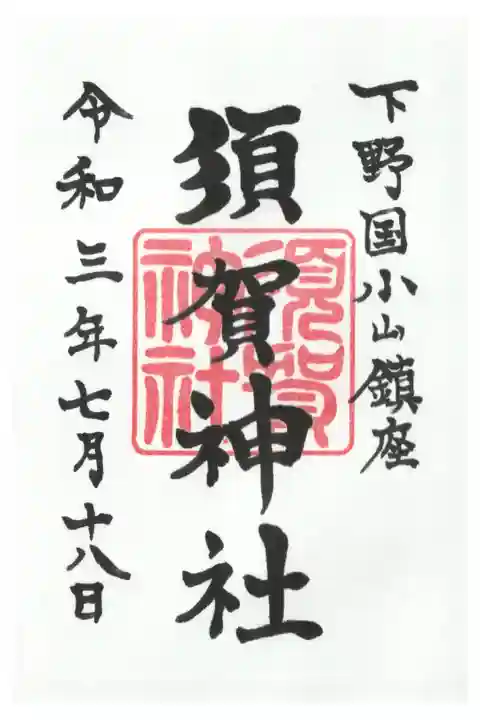 下野国小山鎮座
須賀神社
須賀神社
令和三年七月十八日